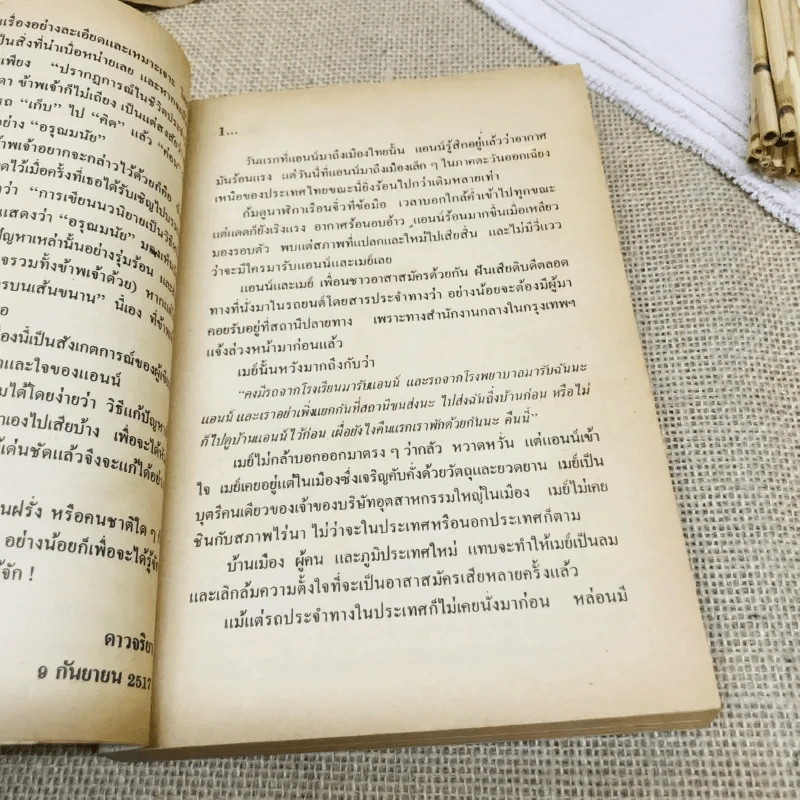 เรื่องอย่างละเอียดและเหมาะเจาะ
เป็นสิ่งที่น่าเบื่อหน่ายเลย และหาก
เพียง "ปรากฏการณ์ในชีวิต
ดา ข้าพเจ้าก็ไม่เถียง เป็นแต่สงสัย
รถ "เก็บ" ไป "คิด" แล้ว
อย่าง "อรุณมนัย"
าพเจ้าอยากจะกล่าวไว้ด้วยก็คือ
ดไว้เมื่อครั้งที่เธอได้รับเชิญไป
ว่า "การเขียนนวนิยายเป็นวิธี
แสดงว่า "อรุณมนัย"
ปัญหาเหล่านั้นอย่างรุ่มร้อน
จรวมทั้งข้าพเจ้าด้วย) หาก
รบนเส้นขนาน" นี้เอง ที่
อ
องนี้เป็นสังเกตการณ์ของผู้เขียน
าและใจของแอนน์
มได้โดยง่ายว่า วิธีแก้ปัญหา
าเองไปเสียบ้าง เพื่อจะได้
เด่นชัดแล้วจึงจะแก้ได้อย่าง
นฝรั่ง หรือคนชาติใด ๆ
อย่างน้อยก็เพื่อจะได้รู้จัก
จัก !
ดาวจริยา
9 กันยายน 2517
1...
วันแรกที่แอนน์มาถึงเมืองไทยนั้น แอนน์รู้สึกอยู่แล้วว่าอากาศ
มันร้อนแรง แต่วันนี้ที่แอนน์มาถึงเมืองเล็ก ๆ ในภาคตะวันออกเฉียง
เหนือของประเทศไทยขณะนี้ยิ่งร้อนไปกว่าเดิมหลายเท่า
ก้มดูนาฬิกาเรือนจิ๋วที่ข้อมือ เวลาบอกใกล้ค่ำเข้าไปทุกขณะ
แต่แดดก็ยังเริงแรง อากาศร้อนอบอ้าว แอนน์ร้อนมากขึ้นเมื่อเหลียว
มองรอบตัว พบแต่สภาพที่แปลกและใหม่ไปเสียสิ้น และไม่มีวี่แวว
ว่าจะมีใครมารับแอนน์และเมย์เลย
แอนน์และเมย์ เพื่อนชาวอาสาสมัครด้วยกัน ฝันเสียดิบดีตลอด
ทางที่นั่งมาในรถยนต์โดยสารประจำทางว่า อย่างน้อยจะต้องมีผู้มา
คอยรับอยู่ที่สถานีปลายทาง เพราะทางสำนักงานกลางในกรุงเทพฯ
แจ้งล่วงหน้ามาก่อนแล้ว
เมย์นั้นหวังมากถึงกับว่า
"คงมีรถจากโรงเรียนมารับแอนน์ และรถจากโรงพยาบาลมารับฉันนะ
แอนน์ และเราอย่าเพิ่งแยกกันที่สถานีขนส่งนะ ไปส่งฉันถึงบ้านก่อน หรือไม่
ก็ไปดูบ้านแอนน์ไว้ก่อน เผื่อยังไงคืนแรกเราพักด้วยกันนะ คืนนี้"
เมย์ไม่กล้าบอกออกมาตรง ๆ ว่ากลัว หวาดหวั่น แต่แอนน์เข้า
ใจ เมย์เคยอยู่แต่ในเมืองซึ่งเจริญคับคั่งด้วยวัตถุและยวดยาน เมย์เป็น
บุตรีคนเดียวของเจ้าของบริษัทอุตสาหกรรมใหญ่ในเมือง เมย์ไม่เคย
ชินกับสภาพไร่นา ไม่ว่าจะในประเทศหรือนอกประเทศก็ตาม
บ้านเมือง ผู้คน และภูมิประเทศใหม่ แทบจะทำให้เมย์เป็นลม
และเลิกล้มความตั้งใจที่จะเป็นอาสาสมัครเสียหลายครั้งแล้ว
แม้แต่รถประจำทางในประเทศก็ไม่เคยนั่งมาก่อน หล่อนมี